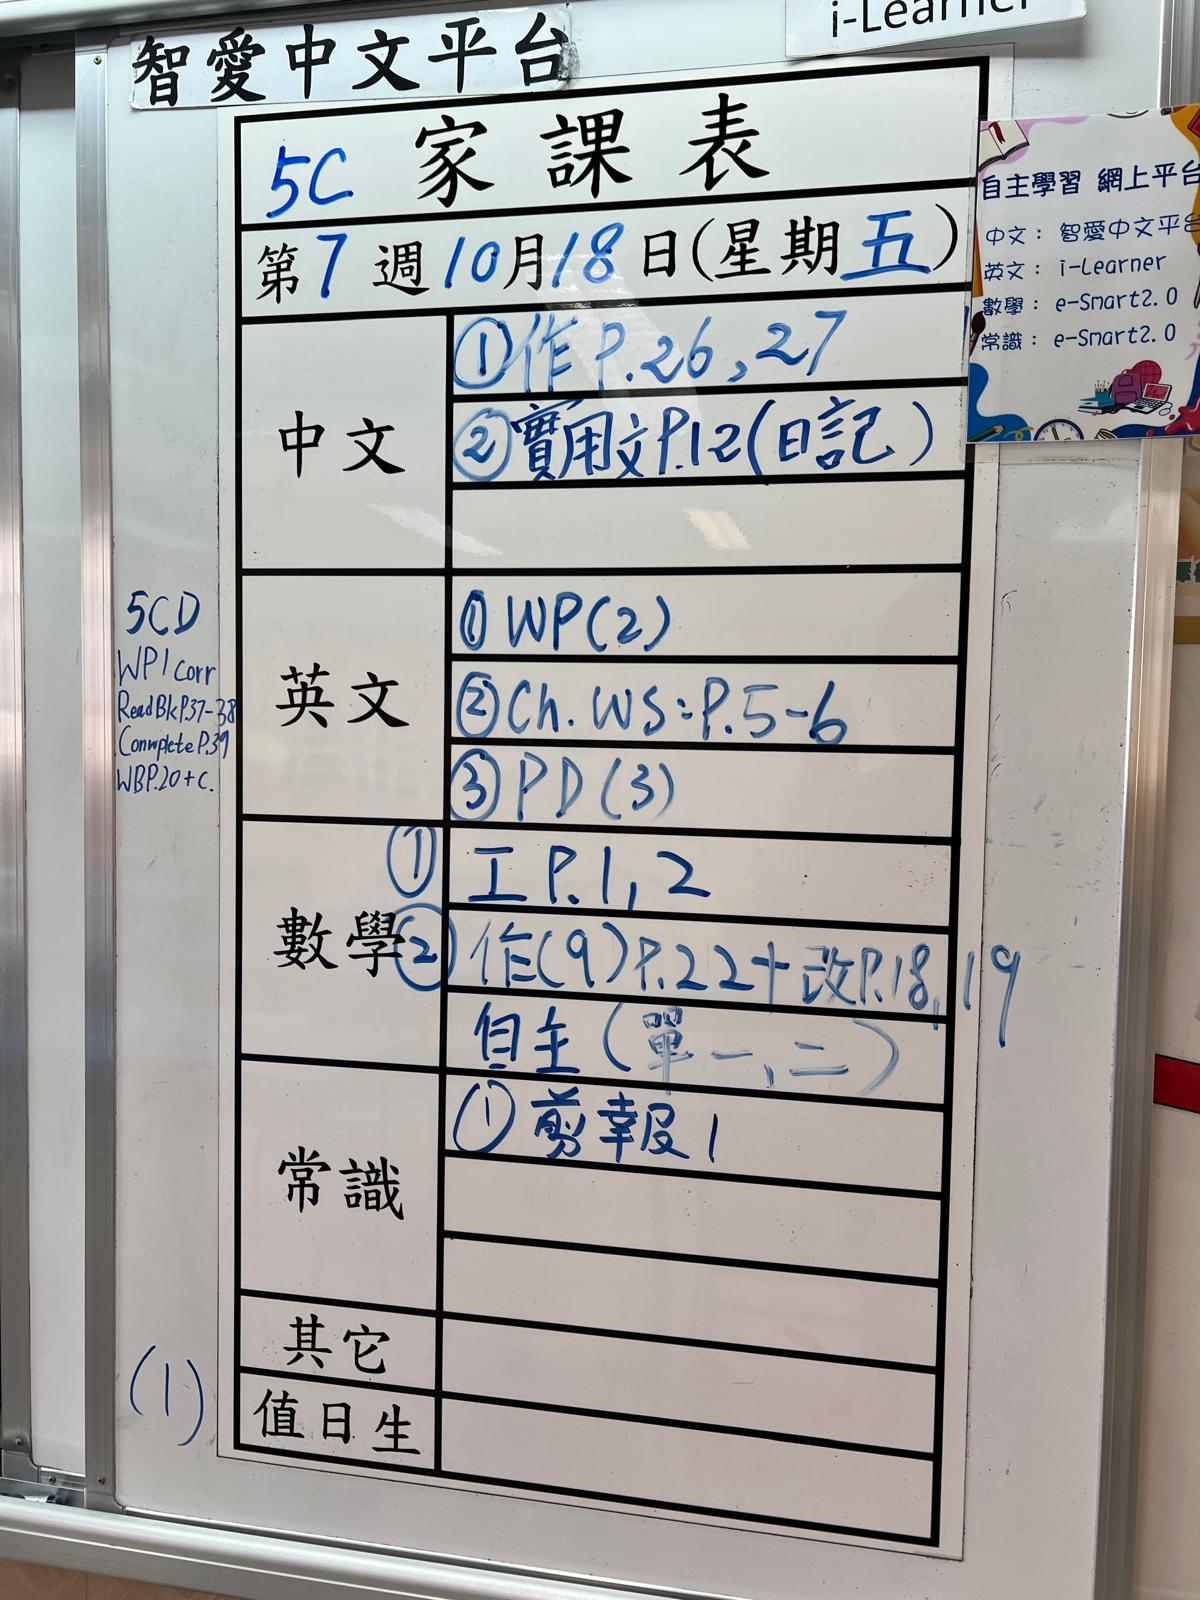 智愛中文平台
i-Learner
5C 家課表
第7週10月18日(星期五)
中文
①作P.26,27
②實用文P.12(日記)
英文
①WP(2)
②Ch. WS:P.5-6
③PD(3)
數學
①工P.1,2
②作(9)P.22+改P.18,19
自主(單一、二)
常識
①剪報1
其它
值日生
5CD
WP1 corr
Read Bk P.37-38
Conmplete P.39
WBP.20+c.
(1)
自主學習 網上平台
中文：智愛中文平台
英文：i-Learner
數學：e-Smart2.0
常識：e-Smart2.0